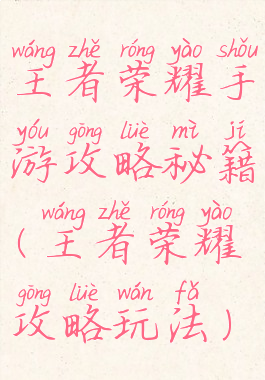 wáng zhě róng yào shǒu
王者荣耀手
yóu gōng lüè mì jí
游攻略秘籍
wáng zhě róng yào
(王者荣耀
gōng lüè wán fǎ
攻略玩法)